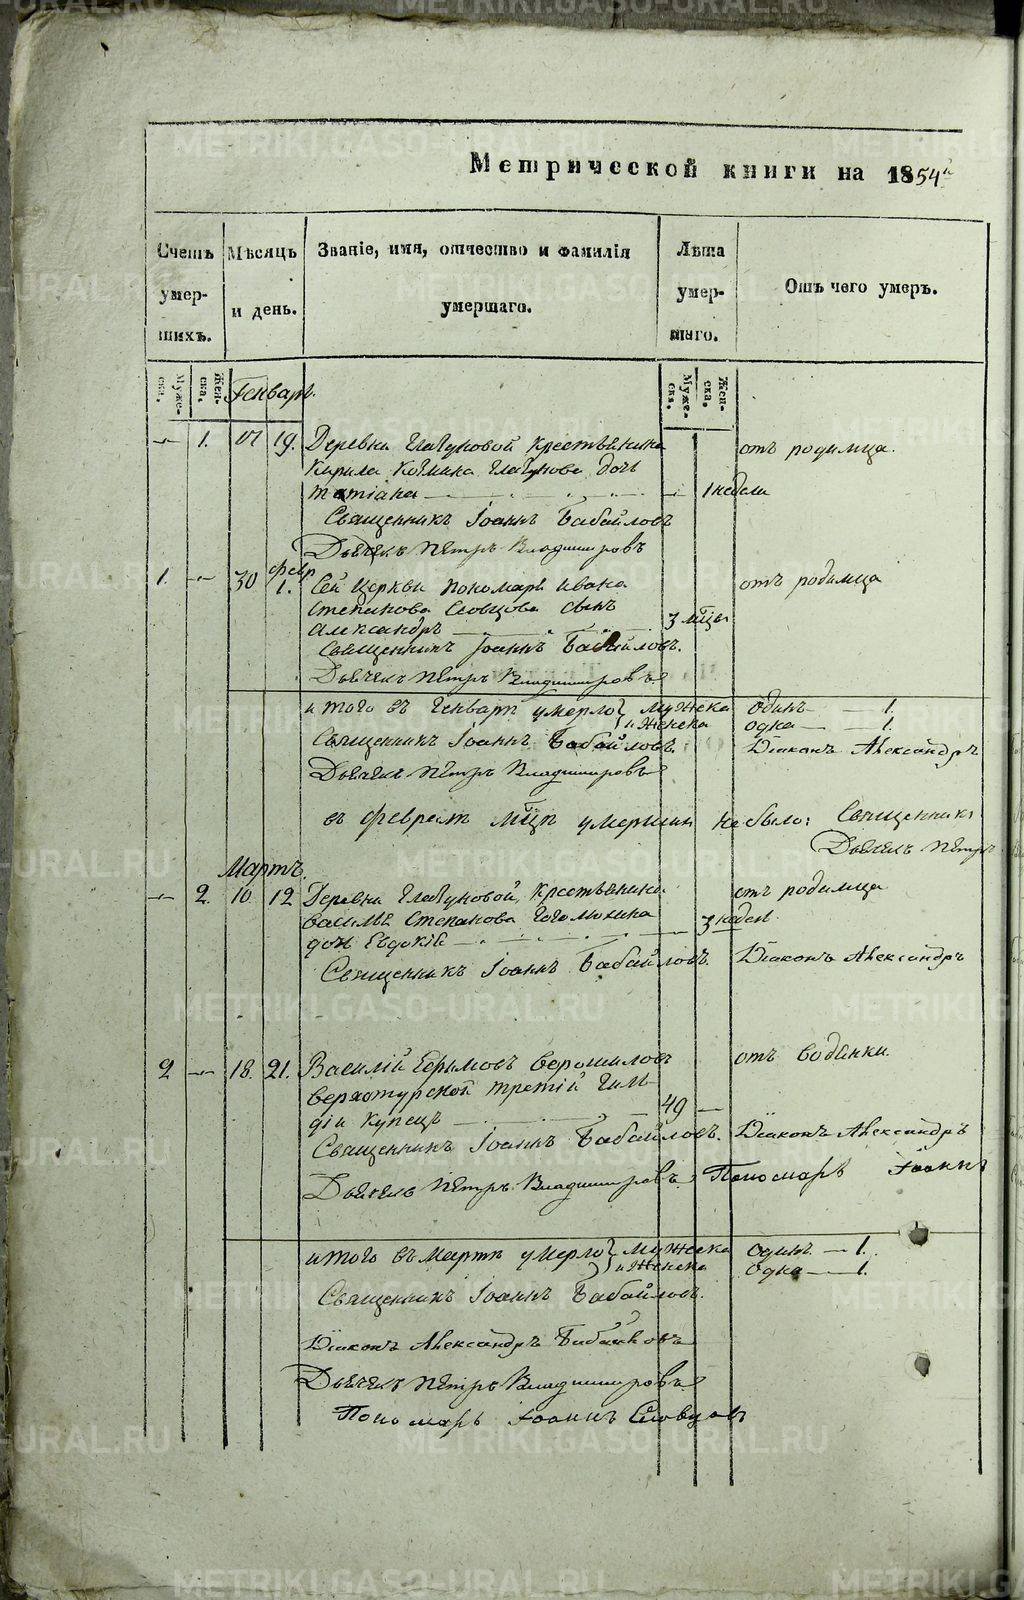 Метрической книги на 1854й
Счетъ умер-шихъ.
Мѣсяцъ и день.
Званіе, имя, отчество и фамилія умершаго.
Лѣта умер-шаго.
Отъ чего умеръ.
Муже-ска.
Жен-ска.
Генварь.
Муже-ска.
Жен-ска.
1. 17 19. Деревни Глазуновой крестьянина отъ родимца.
Кирила Козмина Глазунова дочь
татіана 1 недели
Священникъ Іоаннъ Бабайловъ
Дьячекъ Петръ Владимировъ
февр
1. 30 1. Сей церкви пономаря Ивана отъ родимца
Степанова Словцова сынъ
Александръ 3 мѣсц.
Священникъ Іоаннъ Бабайловъ.
Дьячекъ Петръ Владимировъ
итого въ Генварѣ умерло мужеска одинъ 1.
и женска одна 1.
Священникъ Іоаннъ Бабайловъ Діаконъ Александръ
Дьячекъ Петръ Владимировъ
въ февралѣ мѣцѣ умершихъ небыло: Священникъ
Дьячекъ Петръ
Мартъ.
2. 10. 12 Деревни Глазуновой, крестьянина отъ родимца
Василья Степанова 3 недел
дочь Евдокія
Священникъ Іоаннъ Бабайловъ. Діаконъ Александръ
2 18. 21. Василій Ефимовъ Ворошиловъ отъ водянки.
Верхотурской третій гиль-
діи купецъ 49
Священникъ Іоаннъ Бабайловъ. Діаконъ Александръ
Дьячекъ Петръ Владимировъ. Пономарь Іоаннъ
итого въ Мартѣ умерло мужеска одинъ 1.
и женска одна 1.
Священникъ Іоаннъ Бабайловъ.
Діаконъ Александръ Бабайловъ
Дьячекъ Петръ Владимировъ
Пономарь Іоаннъ Словцовъ
METRIKI.GASO-URAL.RU